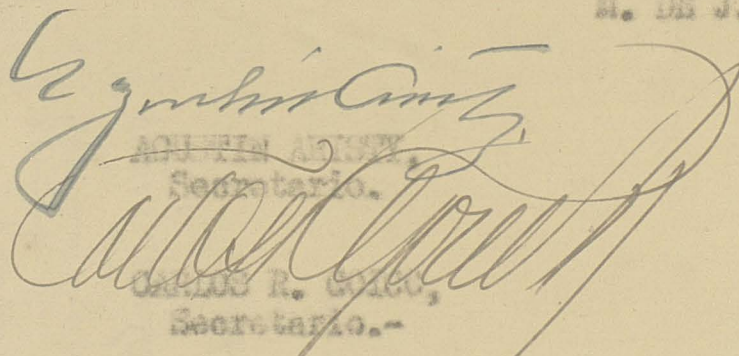 M. DE J.
AGUSTIN ARISTY,
Secretario.
CARLOS R. GOICO,
Secretario.-